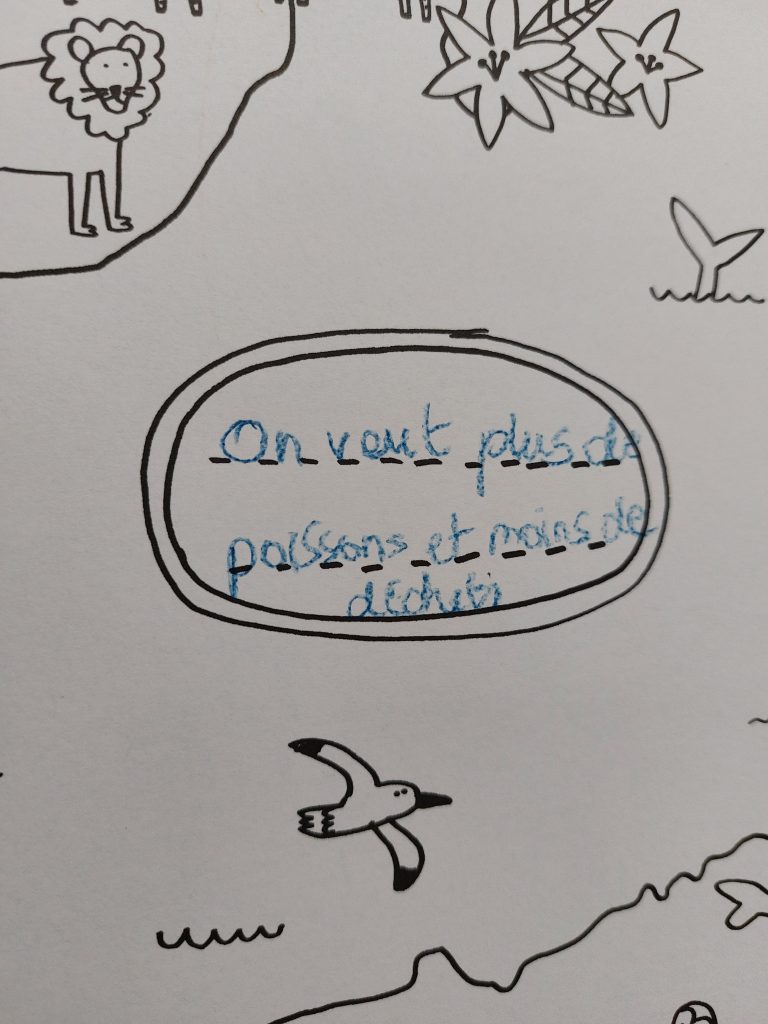 On veut plus de
poissons et moins de
déchets